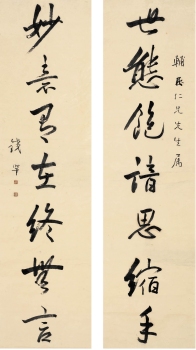 輔民仁兄先生属
世態飽諳思縮手
妙意有在終無言
錢罕